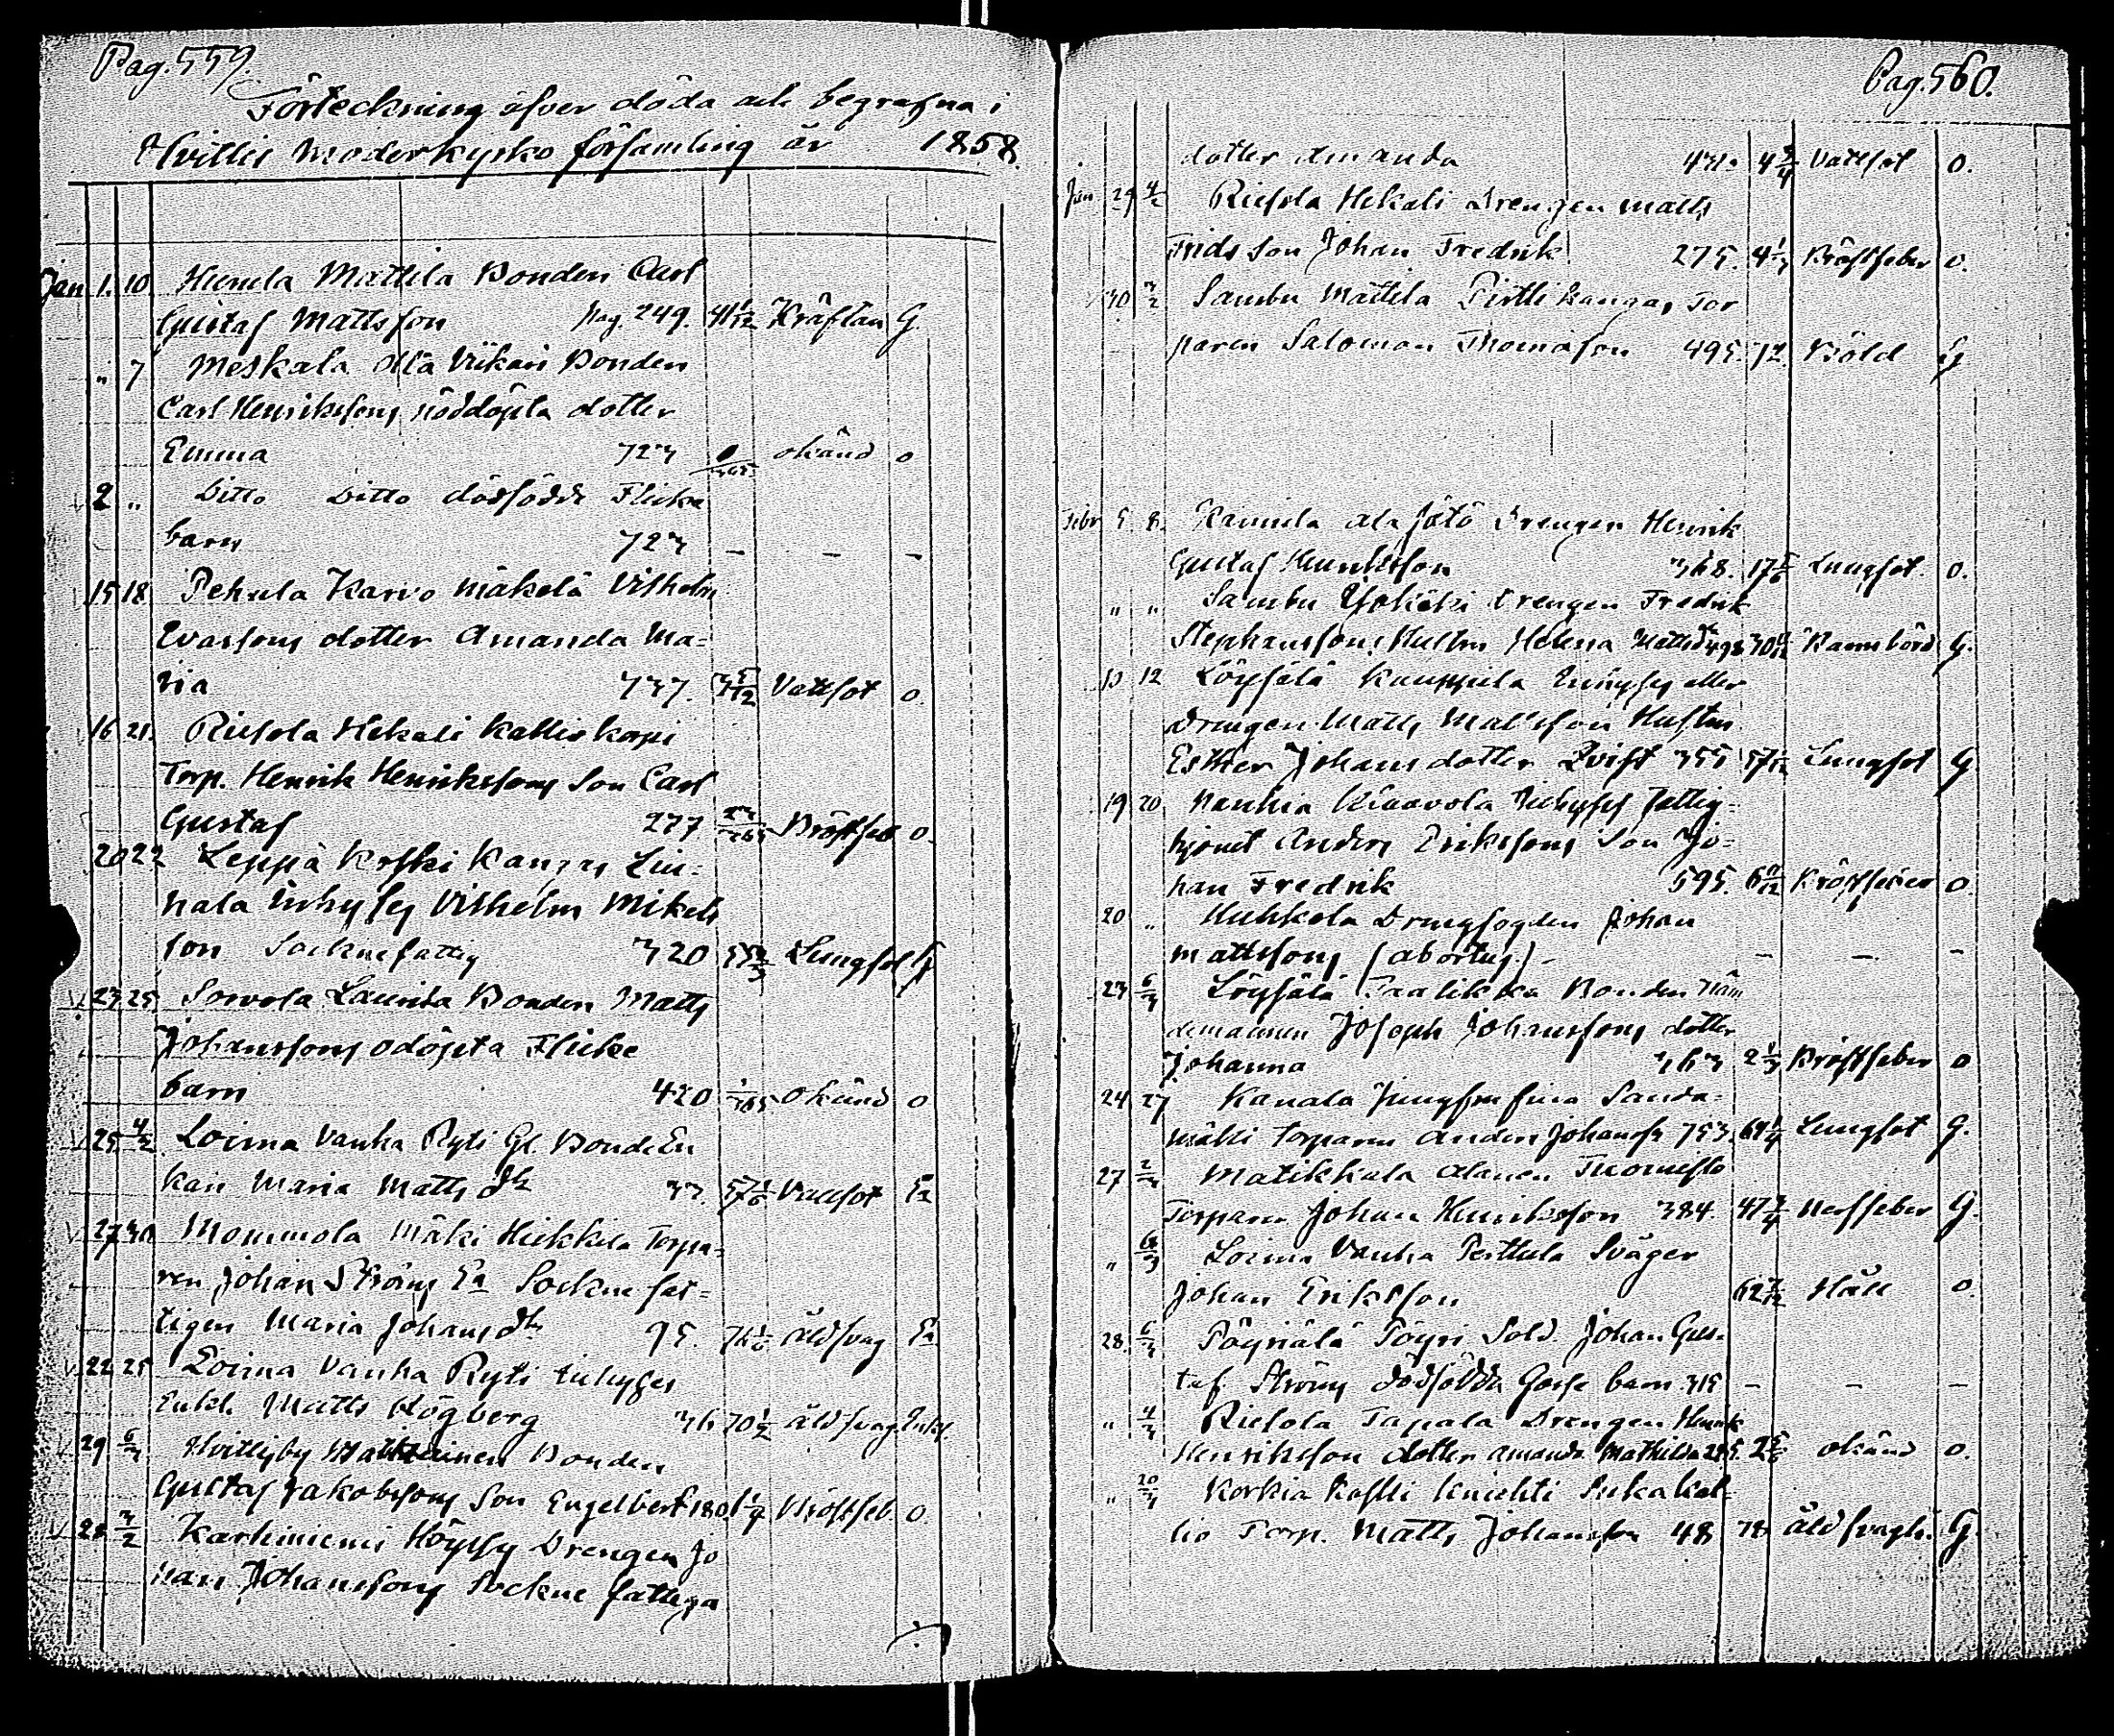 Pag. 559.
Förteckning öfver döda och begrafna i
Hvittis Moderkyrko församling år 1858.
Jan 1. 10 Hunela Mattila Bonden Carl
Gustaf Mattsson pag. 249. 41 1/12 Kräftan G.
" 7 Meskala Ollä Viikari Bonden
Carl Henrikssons nöddöpta dotter
Emma 723 okänd o
2 " Ditto Ditto dödfödde Flicke
barn 723 – – –
15 18 Pehula Karvo Mäkelä Vilhelm
Evassons dotter Amanda Ma=
ria 737. Vattsot o.
16 21. Riesola Hekali Kalliokorpi
Torp. Henrik Henrikssons Son Carl
Gustaf 277 Bröstfeb o.
20 22 Leppä Koski Kangas Lin=
nala Inhyses Vilhelm Mikels
son Socknefattig 320 Lungsot G
23 25 Sorvola Laurila Bonden Matts
Johanssons odöpta Flicke
barn 420 1/365 okänd o
25 4/2 Loima Vanha Ryti Gl. Bonde En
kan Maria Matts dr 33. 57 1/6 Vattsot Ea
27 30 Mommola Mäki Heikkilä Torpa=
ren Johan Ströms Ea Sockne fat=
tigen Maria Johans dr 95. 76 1/6 åldsvag Ea
22 25 Loima Vanha Ryti Inhyses
Enkl. Matts Högberg 36 70 1/2 åldsvag Enkl
29 6/3 Hvittisby Bonden
Gustaf Jakobssons Son Engelbert 180 1 1/4 Bröstfeb. o.
28 3/2 Karhiniemi Höyssy Drengen Jo
han Johanssons Sockne fattiga
Pag. 560.
dotter Amanda 431. 4 3/4 Vattsot o.
Jan 29 4/2 Riesola Hekali Drengen Matts
Frids Son Johan Fredrik 275. 4 1/3 Bröstfeber o.
30 3/2 Sambu Mattila Pirttikangas Tor
paren Salomon Thomasson 495. 72. Böld G
Febr 5 8. Raunela Ala Jätö Drengen Henrik
Gustaf Henriksson 368. 17 5/6 Lungsot. o.
" " Sambu Drengen Fredrik
Stephanssons Hustru Helena Mattsdr 498 30 Barnsbörd G.
10 12 Löysälä Kauppila Inhyses eller
Drengen Matts Mattsson Hustru
Esther Johansdotter Qvist 355 Lungsot G
19 20 Vanhia Klaavola Inhyses Fattig=
hjonet Anders Erikssons Son Jo=
han Fredrik 595. 6 Bröstfeber o
20 " Huhkola Drengfogden Johan
Mattssons (abortus.) – – – –
23 6/3 Löysälä Taalikka Bonden Näm
demannen Joseph Johanssons dotter
Johanna 363 2 1/3 Bröstfeber o
24 27 Kanala Jungfru fina Sanda=
mälli Torparen Anders Johanss. 753. 69 1/4 Lungsot G.
27 2/3 Matikkala Alanen
Torparen Johan Henriksson 384. 47 3/4 Nerffeber G.
" 6/3 Loima Vanha Perttula Sväger
Johan Eriksson 62 7/12 Håll o.
28. 6/3 Pöyriälä Pöyri Sold. Johan Gus=
taf Ströms dödfödda Gosse barn 315 – – –
" 4/3 Riesola Tapala Drengen Henrik
Henriksson dotter Amanda Mathilda 285. 2 5/6 okänd o.
" 20/3 Korkia Koski Knichti Sukakal=
lio Torp. Matts Johansson 48 78. åldsvaghet G.